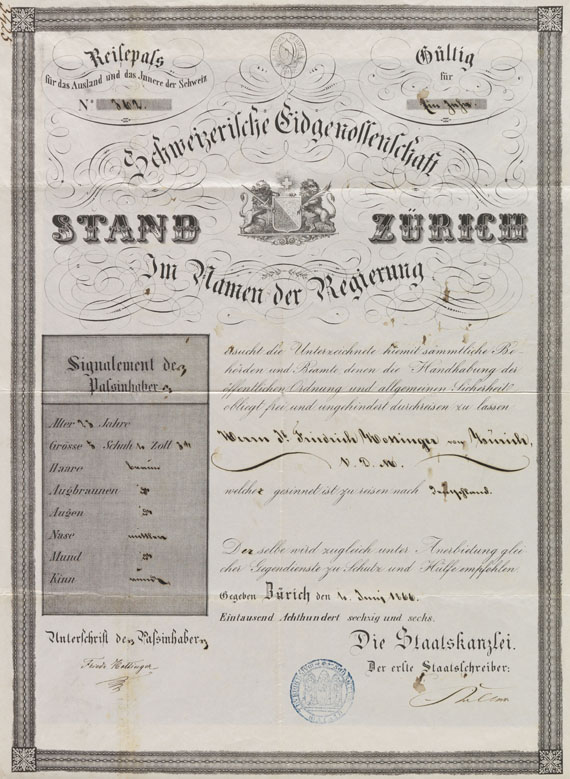 Reisepaſs
für das Ausland und das Innere der Schweiz
N° 362.
Gültig
für
Ein Jahr.
Schweizerische Eidgenossenschaft
STAND ZÜRICH
Im Namen der Regierung
Signalement des
Paſsinhabers
Alter Jahre
Grösse 5 Schuh Zoll
Haare braun
Augbraunen
Augen
Nase mittlere
Mund
Kinn rund
ersucht die Unterzeichnete hiemit sämmtliche Be-
hörden und Beamte denen die Handhabung der
öffentlichen Ordnung und allgemeinen Sicherheit
obliegt frei und ungehindert durchreisen zu lassen
Herrn Friedrich von Zürich,
V. D. M.
welcher gesinnet ist zu reisen nach Deutschland.
Derselbe wird zugleich unter Anerbietung glei
cher Gegendienste zu Schutz und Hülfe empfohlen
Gegeben Zürich den Juny 1866.
Eintausend Achthundert sechzig und sechs.
Unterschrift des Paſsinhabers
Die Staatskanzlei.
Der erste Staatschreiber: